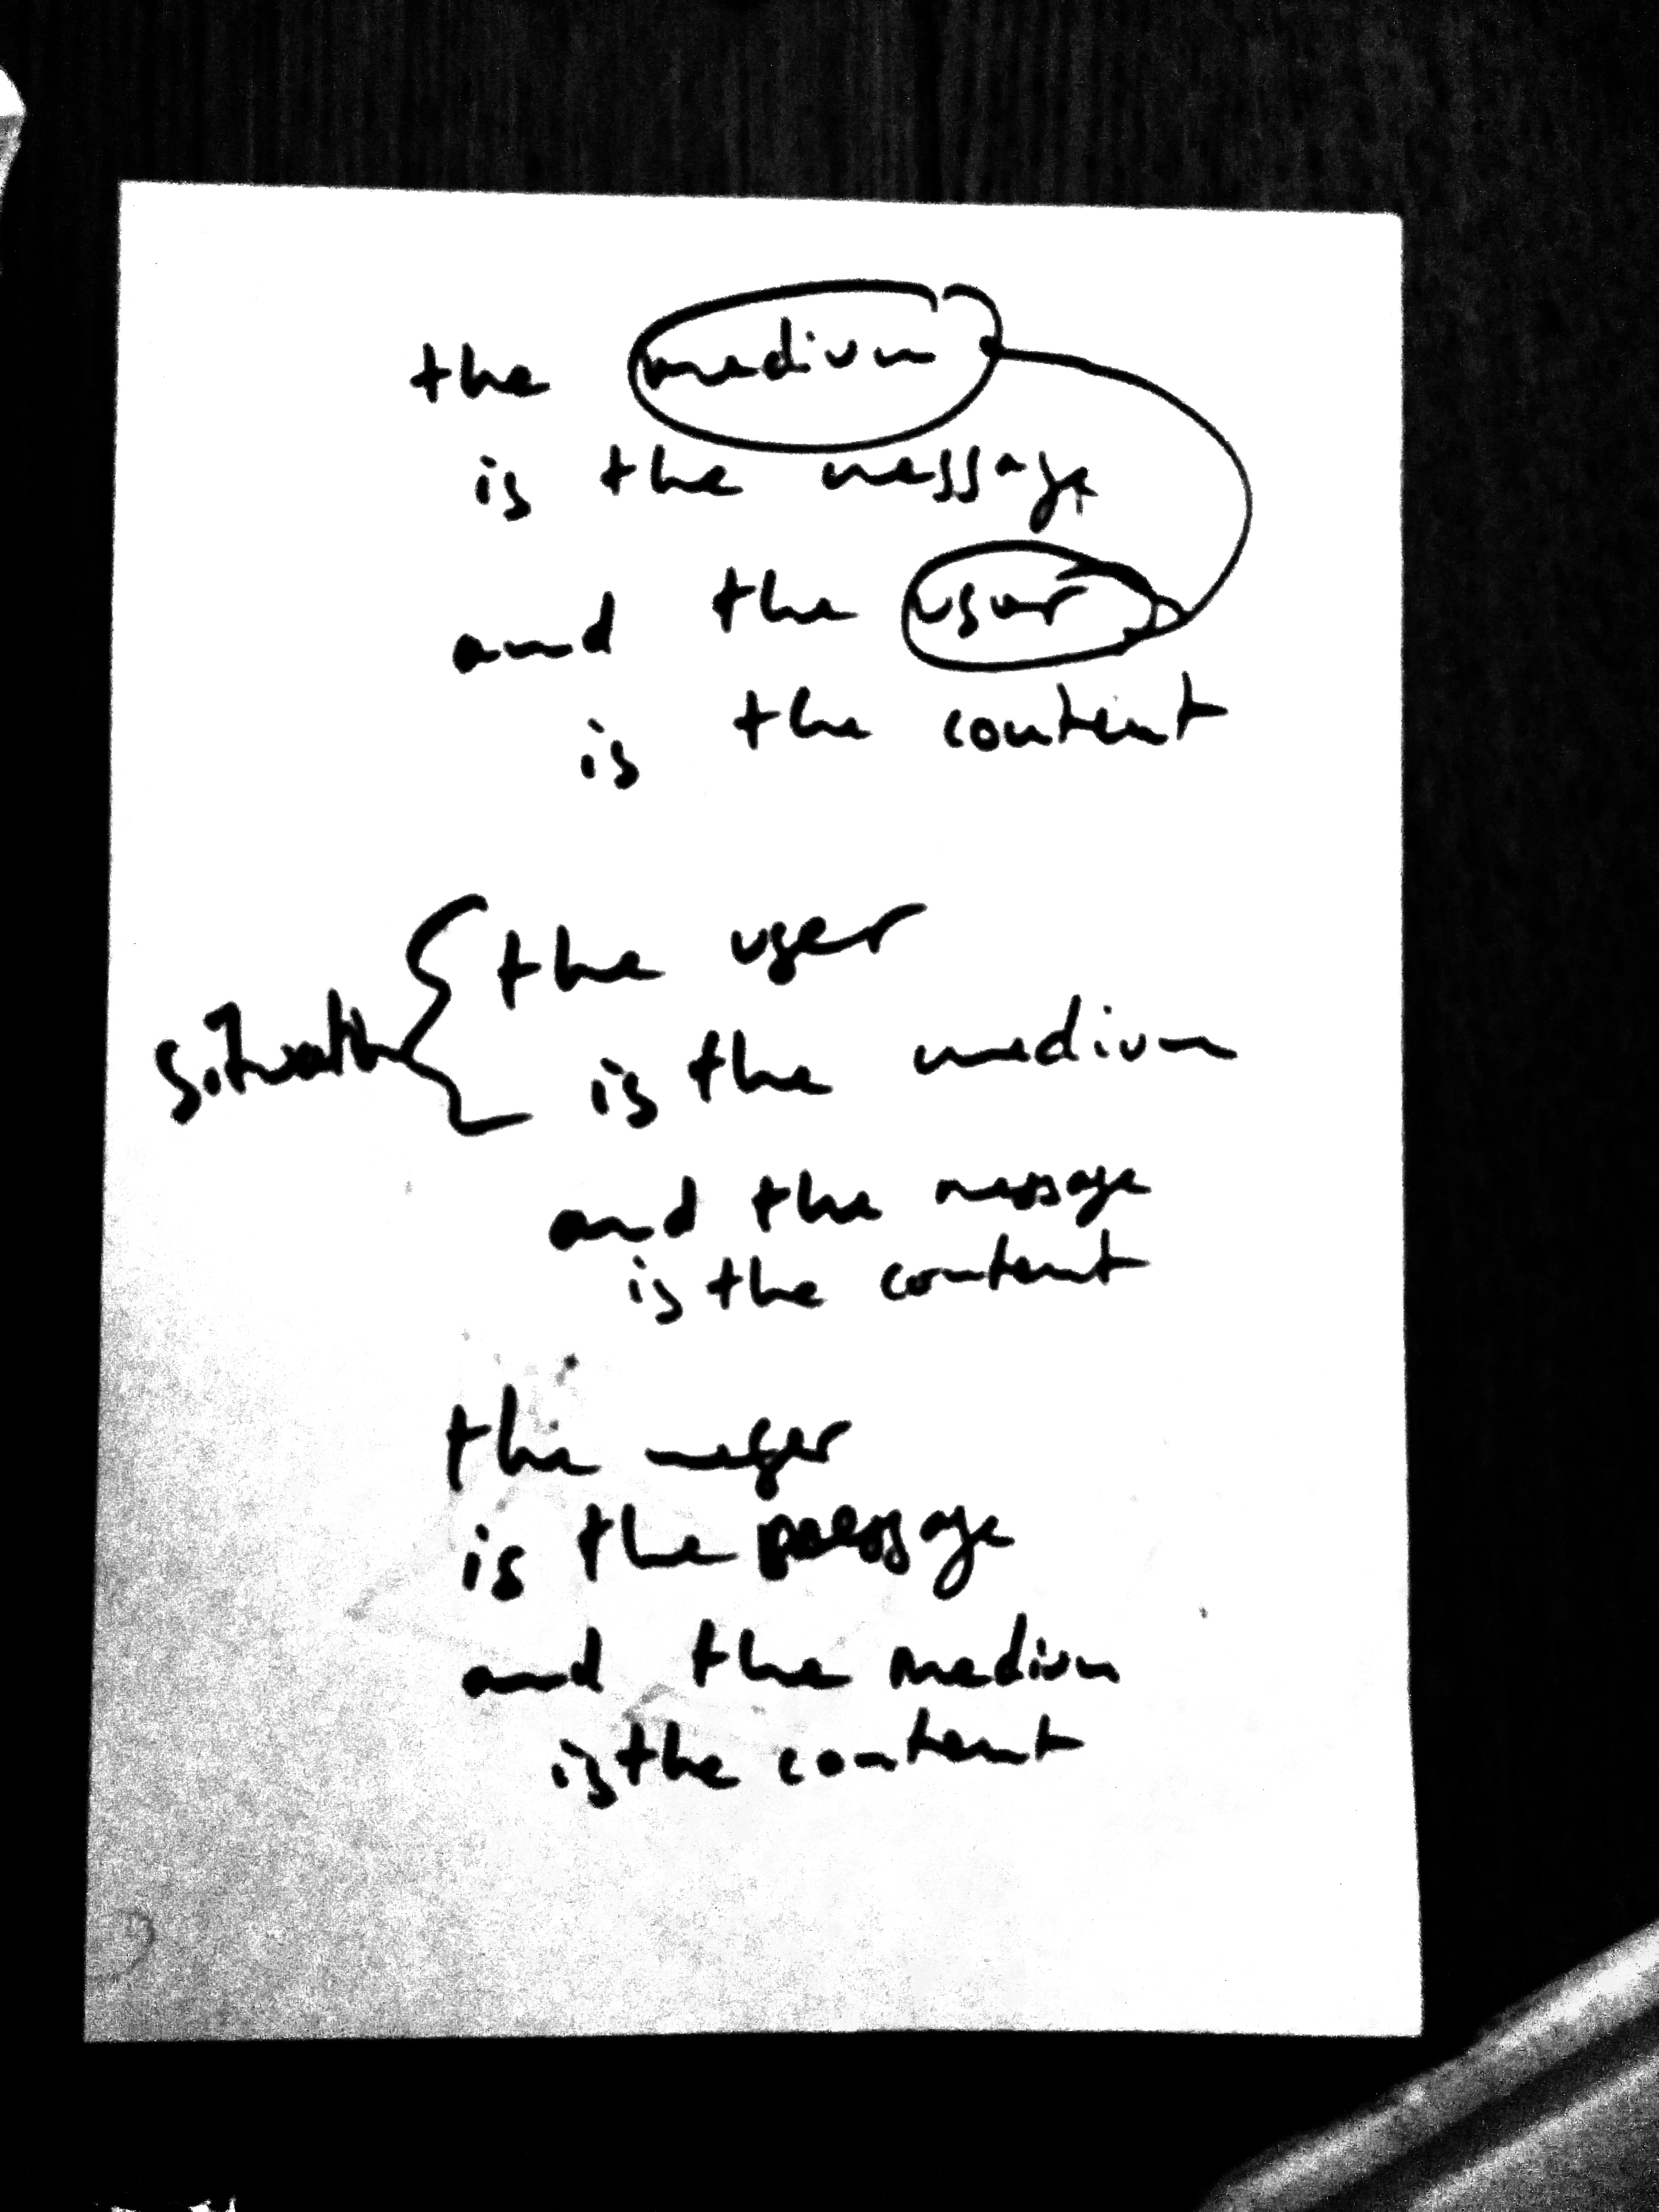 the medium
is the message
and the user
is the content
situation
the user
is the medium
and the message
is the content
the user
is the message
and the medium
is the content